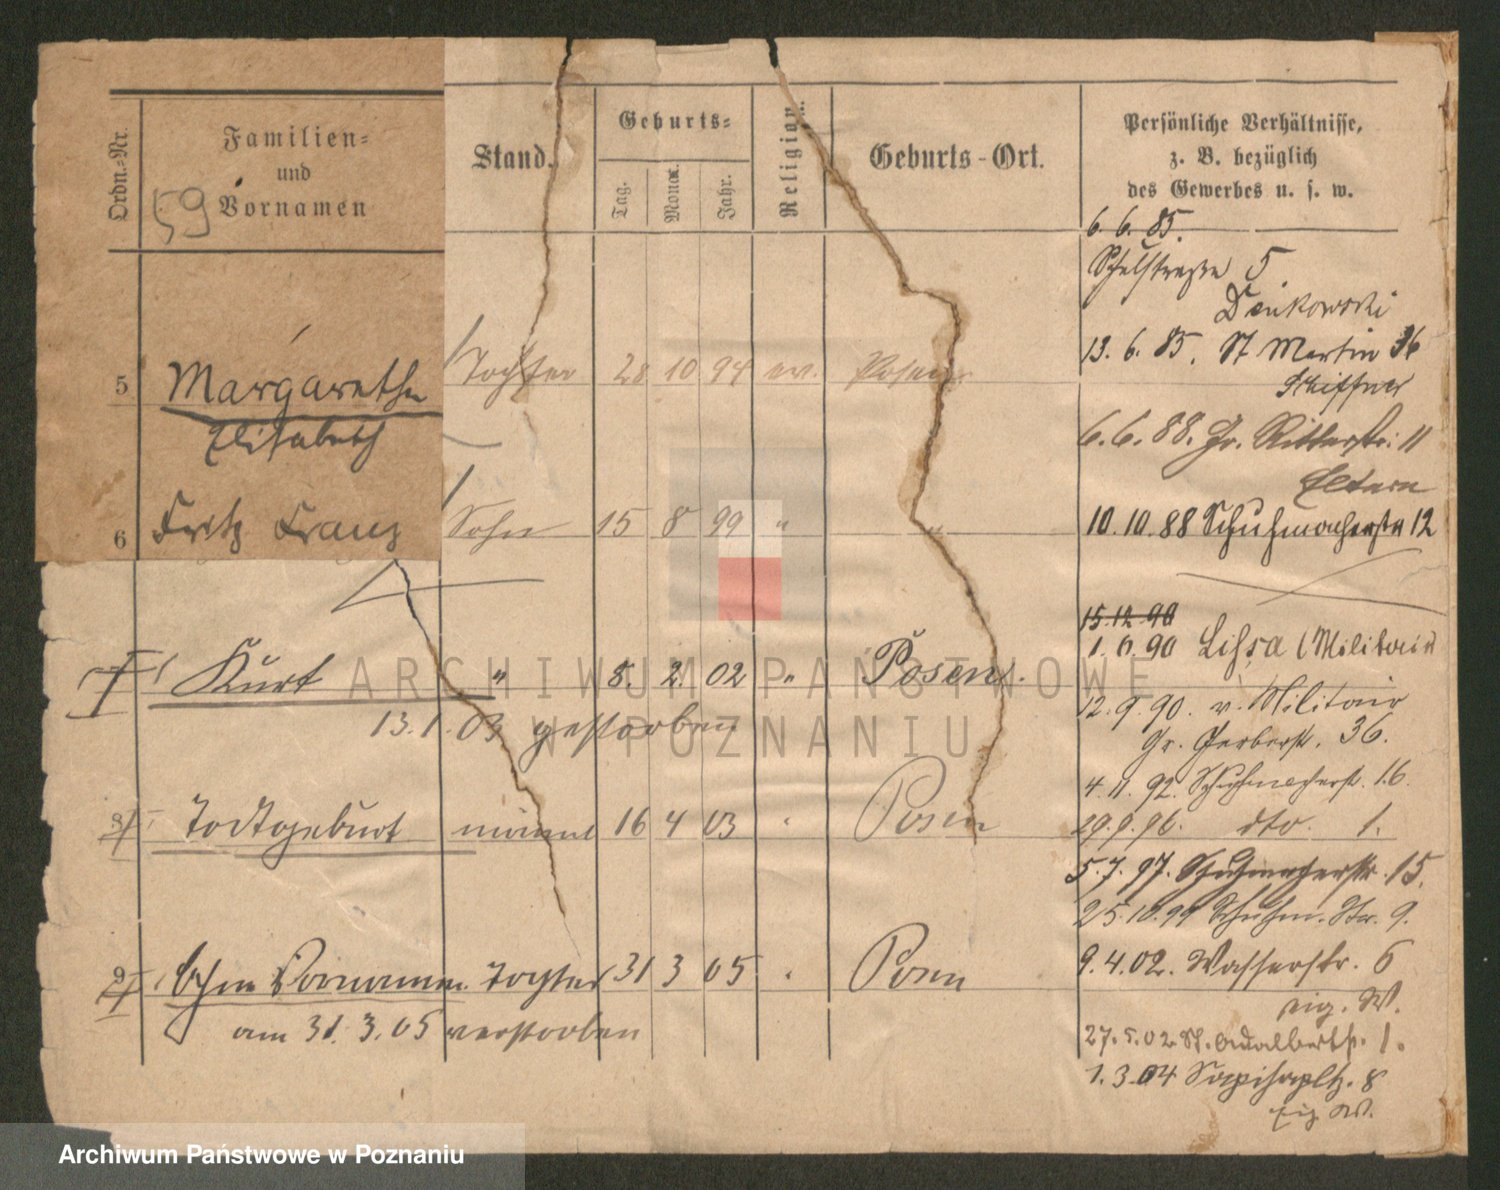 Ordn.-Nr.
Familien-
und
Vornamen
59
Stand.
Geburts-
Tag.
Monat.
Jahr.
Religion.
Geburts-Ort.
Persönliche Verhältnisse,
z. B. bezüglich
des Gewerbes u. s. w.
5 Margarethe Tochter 28 10 94 ev. Posen
Elisabeth
6 Fritz Franz Sohn 15 8 99 " "
7 Kurt " 8. 2. 02 " Posen.
13.1.03 gestorben
8 Todtgeburt männl 16 4 03 " Posen
9 Ohne Vornamen Tochter 31 3 05 " Posen
am 31.3.05 verstorben
6. 6. 85.
Schulstraße 5
Denkowski
13. 6. 85. St Martin 36
Schiffner
6.6.88. Gr. Ritterstr. 11
Eltern
10.10.88 Schuhmacherstr 12
15.12.90
1.6.90 Lissa (Militair
12.9.90. v. Militair
Gr. Gerberst. 36.
4.11.92. Schuhmacherst. 16.
29.9.96. dto. 1.
5.7.97. Schuhmacherstr. 15.
25.10.99 Schuhm. Str. 9.
9.4.02. Wasserstr. 6
eig. W.
27.5.02 St. Adalbertst. 1.
1.3.04 Sapihapltz. 8
Eig W.
ARCHIWUM PAŃSTWOWE
W POZNANIU
Archiwum Państwowe w Poznaniu